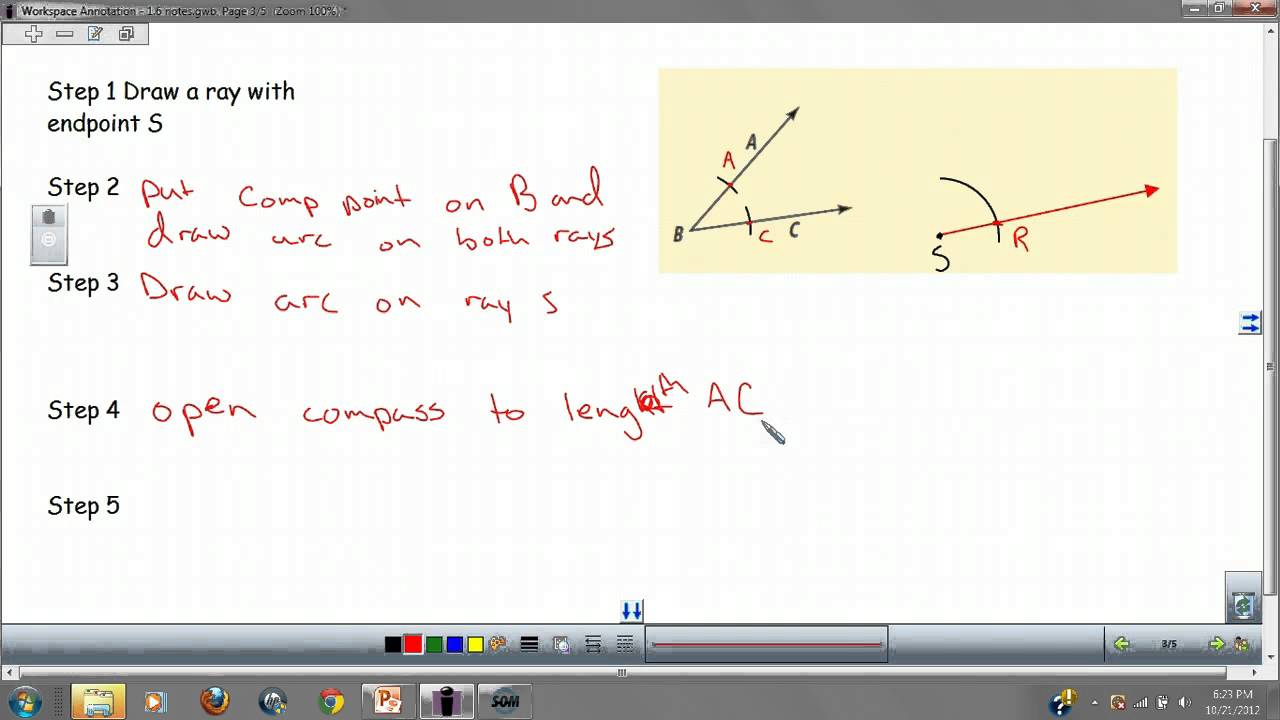 Workspace Annotation - 1.6 notes.gwb. Page 3/5 (Zoom 100%) *
Step 1 Draw a ray with
endpoint S
Step 2 Put Comp point on B and
draw arc on both rays
Step 3 Draw arc on ray S
Step 4 open compass to length AC
Step 5
A
A
B
C
C
S
R
3/5
SOM
6:23 PM
10/21/2012